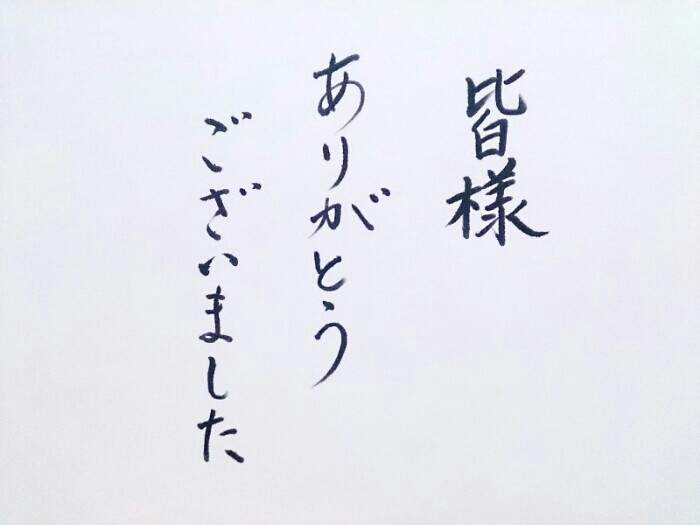 皆様
ありがとう
ございました